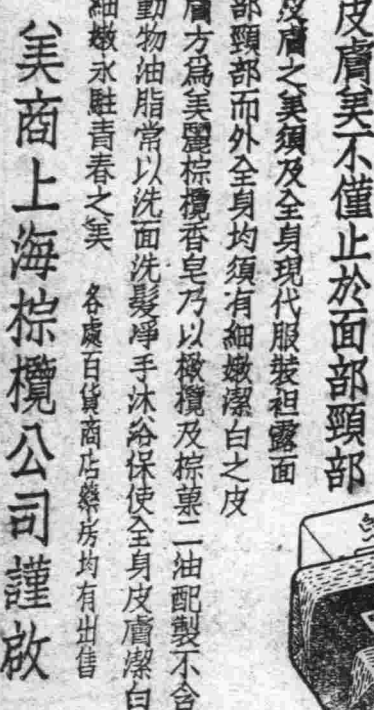 皮膚美不僅止於面部頸部
皮膚之美須及全身現代服裝袒露面
部頸部而外全身均須有細嫩潔白之皮
膚方爲美麗棕欖香皂乃以橄欖及棕菓二油配製不含
動物油脂常以洗面洗髮凈手沐浴保使全身皮膚潔白
細嫩永駐青春之美
各處百貨商店藥房均有出售
美商上海棕欖公司謹啟